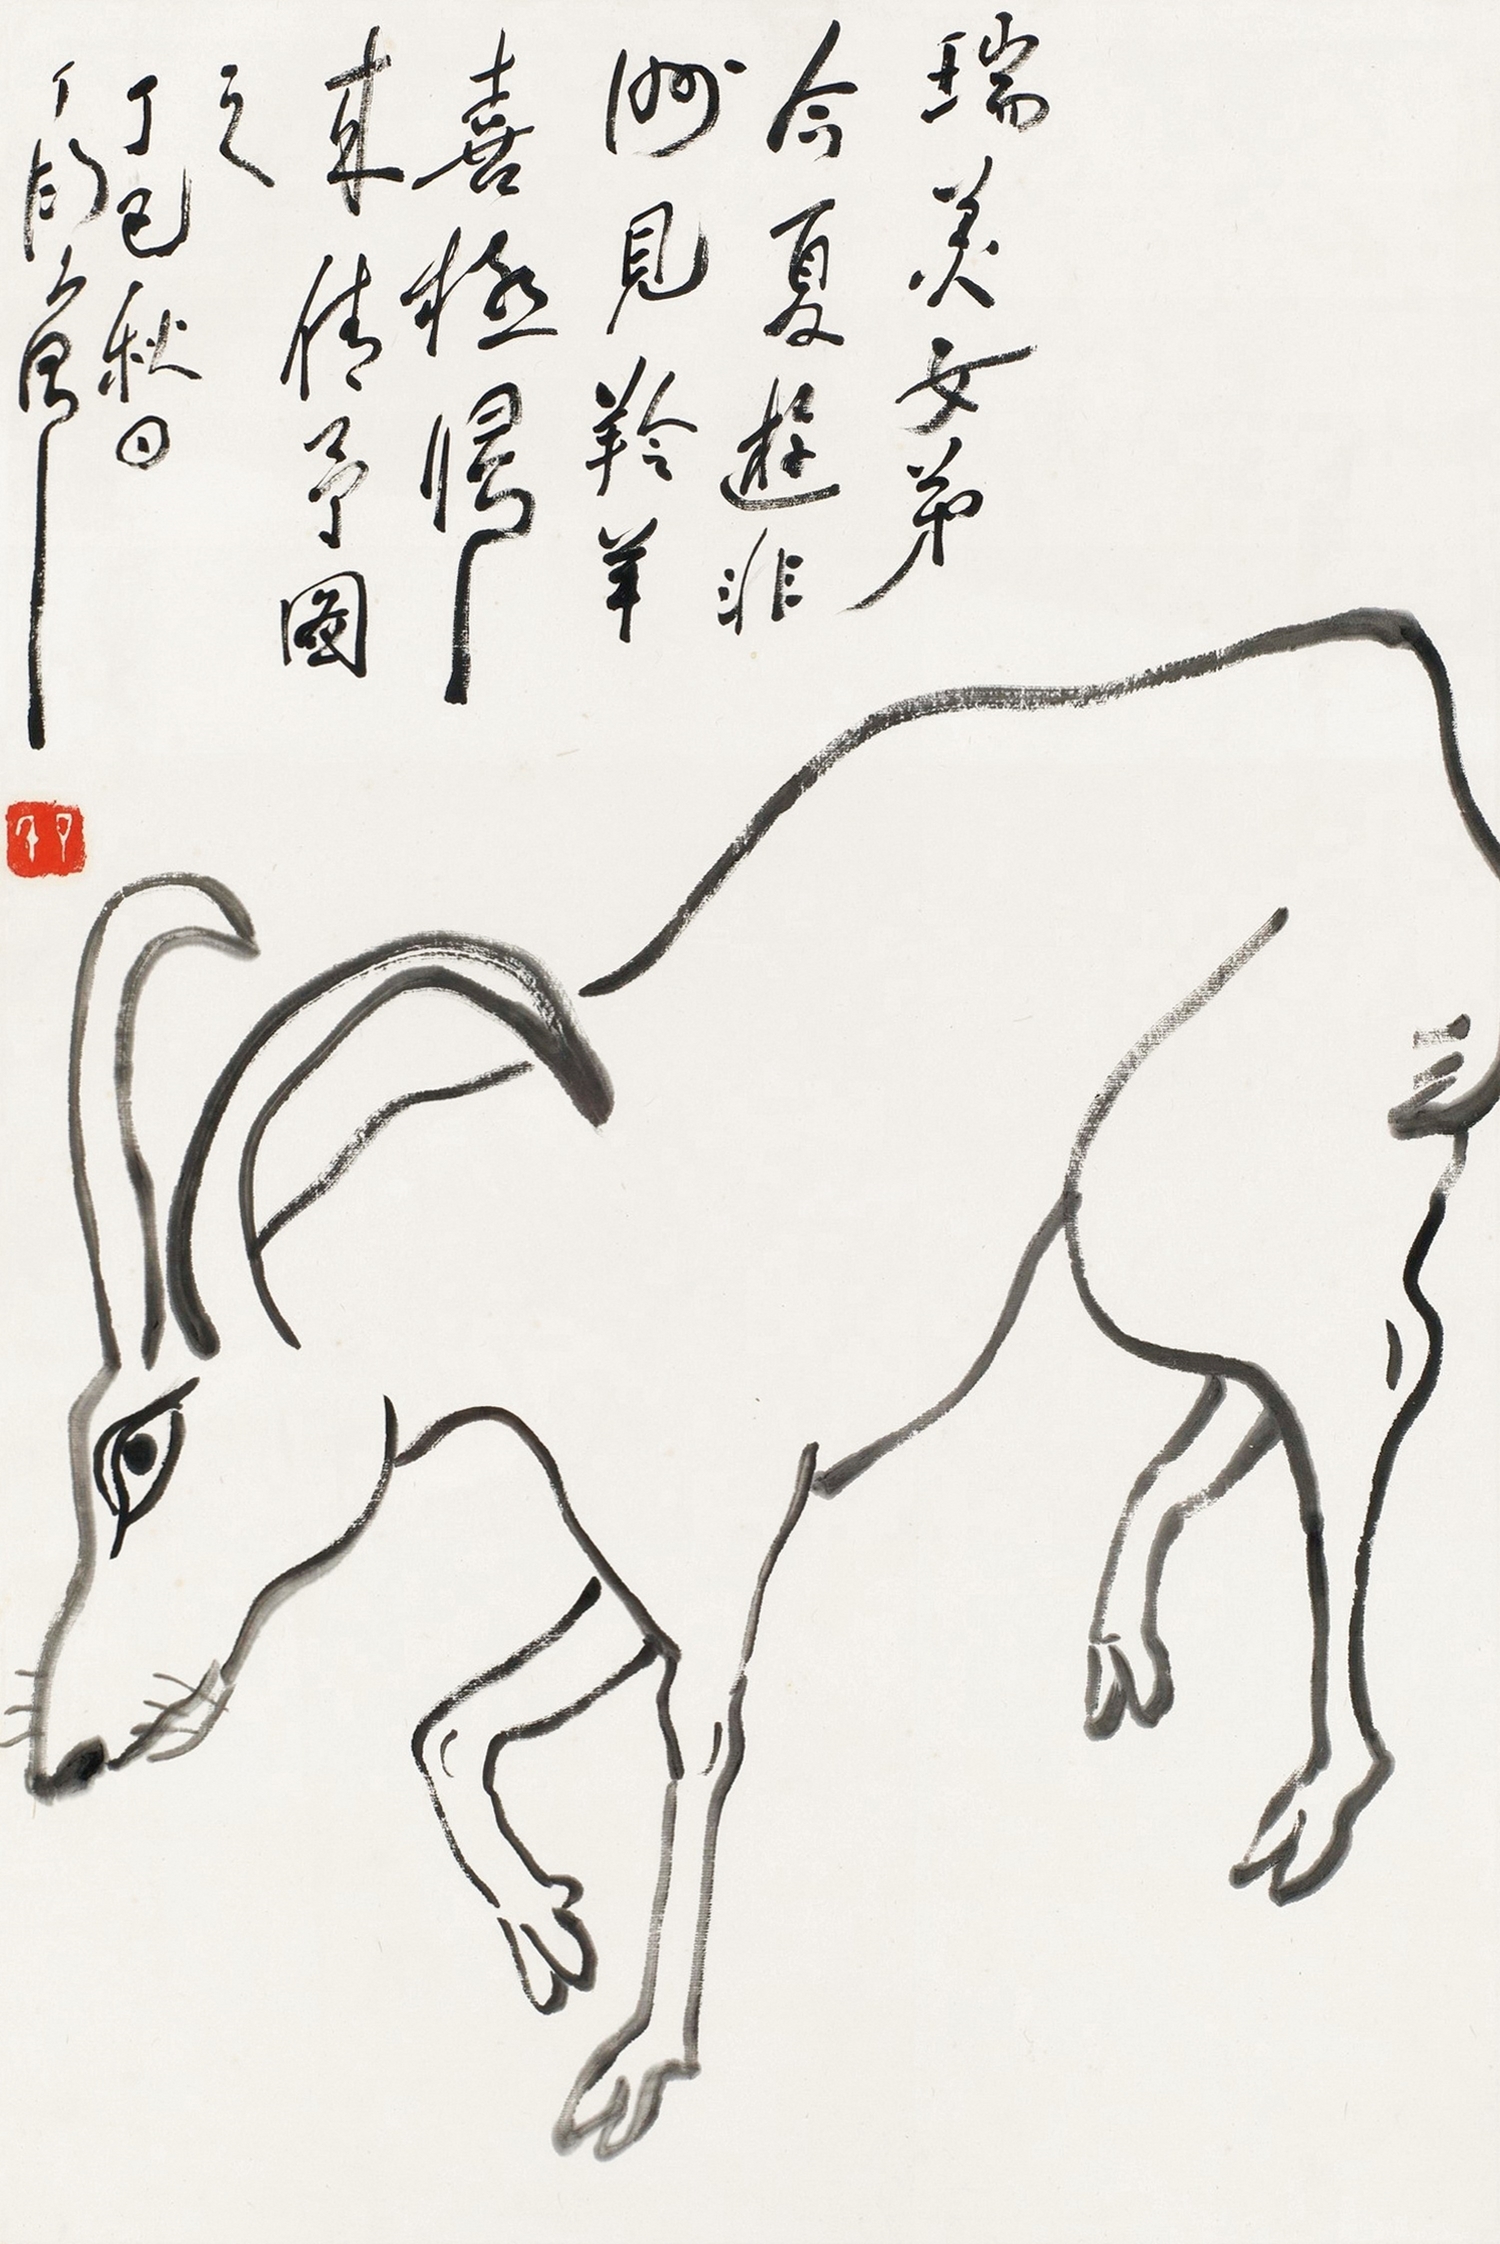 瑞美女弟
今夏遊非
洲見羚羊
喜極歸
來倩予圖
之
丁巳秋日
丁衍庸